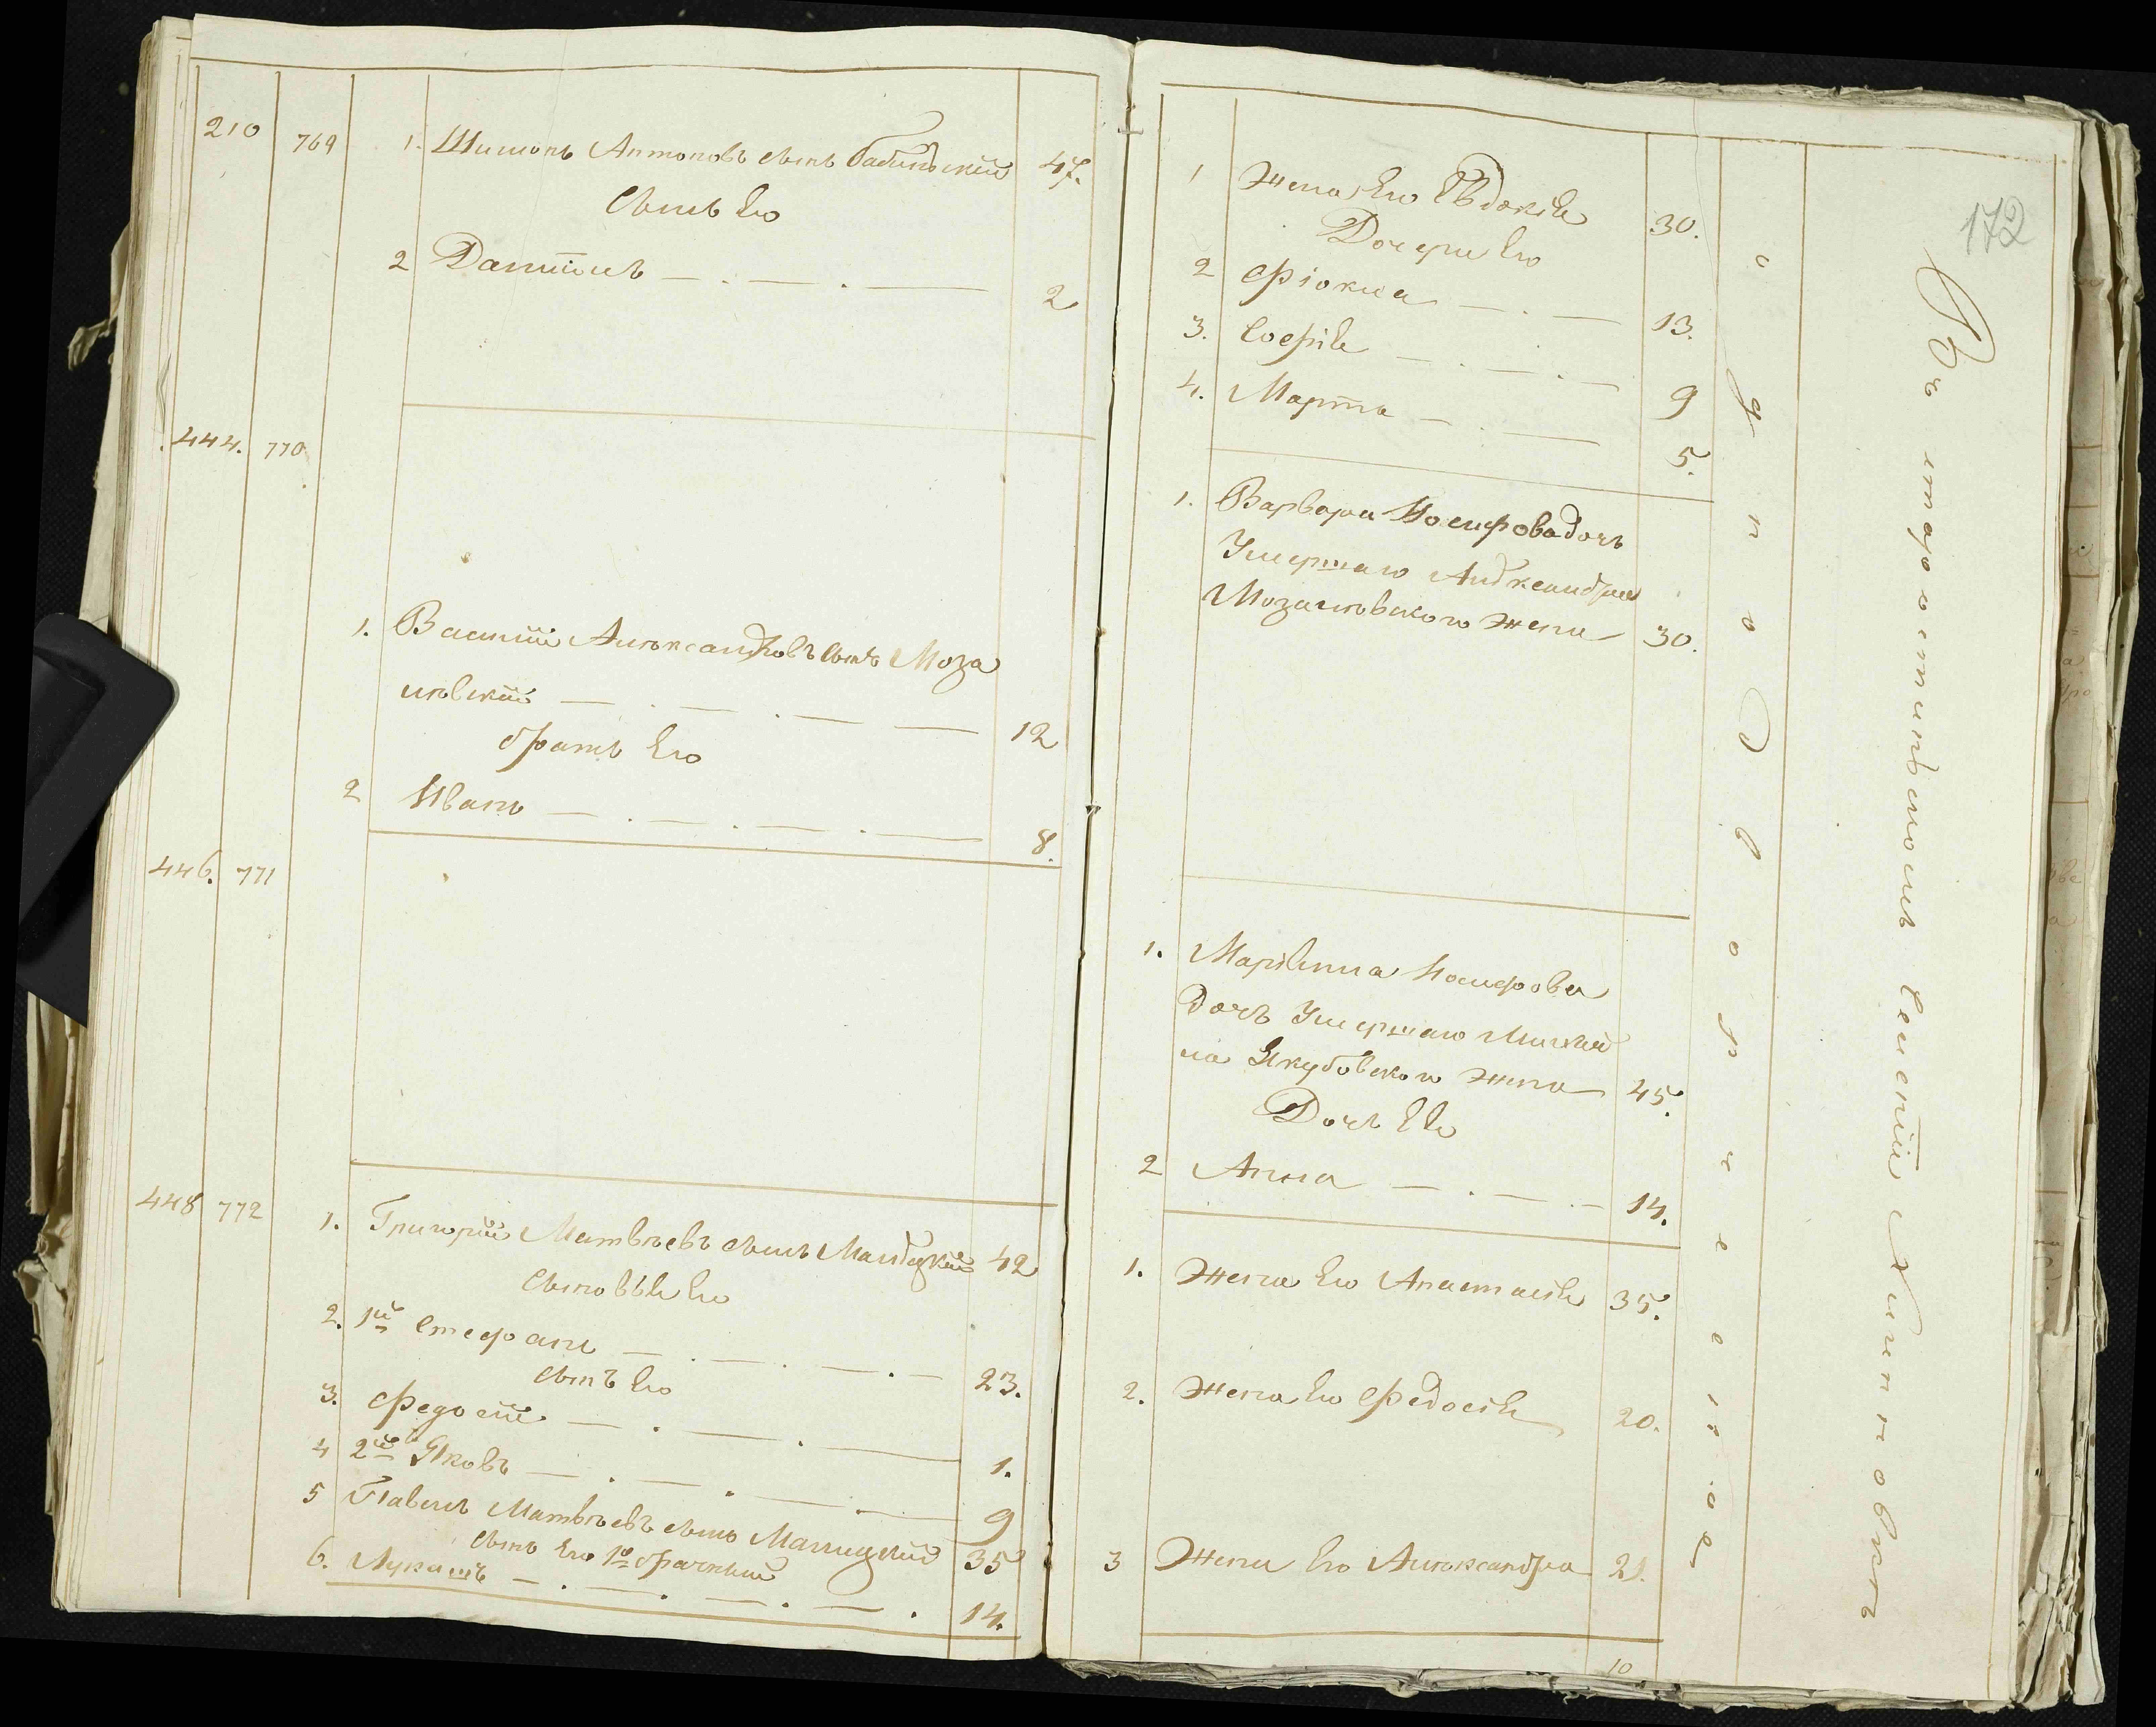 210 769 1. Шимонъ Антоновъ сынъ Бабинскій 47.
Сынъ Его
2 Данїилъ 2
444. 770
1. Василїй Александровъ сынъ Моза
левскїй 12
братъ Его
2 Иванъ 8.
446. 771
448 772 1. Григорїй Матвѣевъ сынъ 42
Сыновья Его
2. 1й Стефанъ 23.
сынъ Его
3. Федосїй 1.
4 2й Яковъ 9
5 Павелъ Матвѣевъ сынъ 35
сынъ Его
6. Лукашъ 14.
172
1 Жена Его Евдокія 30.
Дочери Его
2 Фіокла 13.
3. Софія 9
4. Марта 5.
1. Варвара Иосифова дочь
Умершаго Александра
Мозалевскаго жена 30.
1. Маріанна Иосифова
дочь Умершаго Михай
ла Якубовскаго жена 45.
Дочь Ея
2 Анна 14.
1. Жена Его Анастасія 35.
2. Жена Его Федосія 20.
3 Жена Его Александра 21.
10
однодворческое
Въ староствинскомъ селенїи